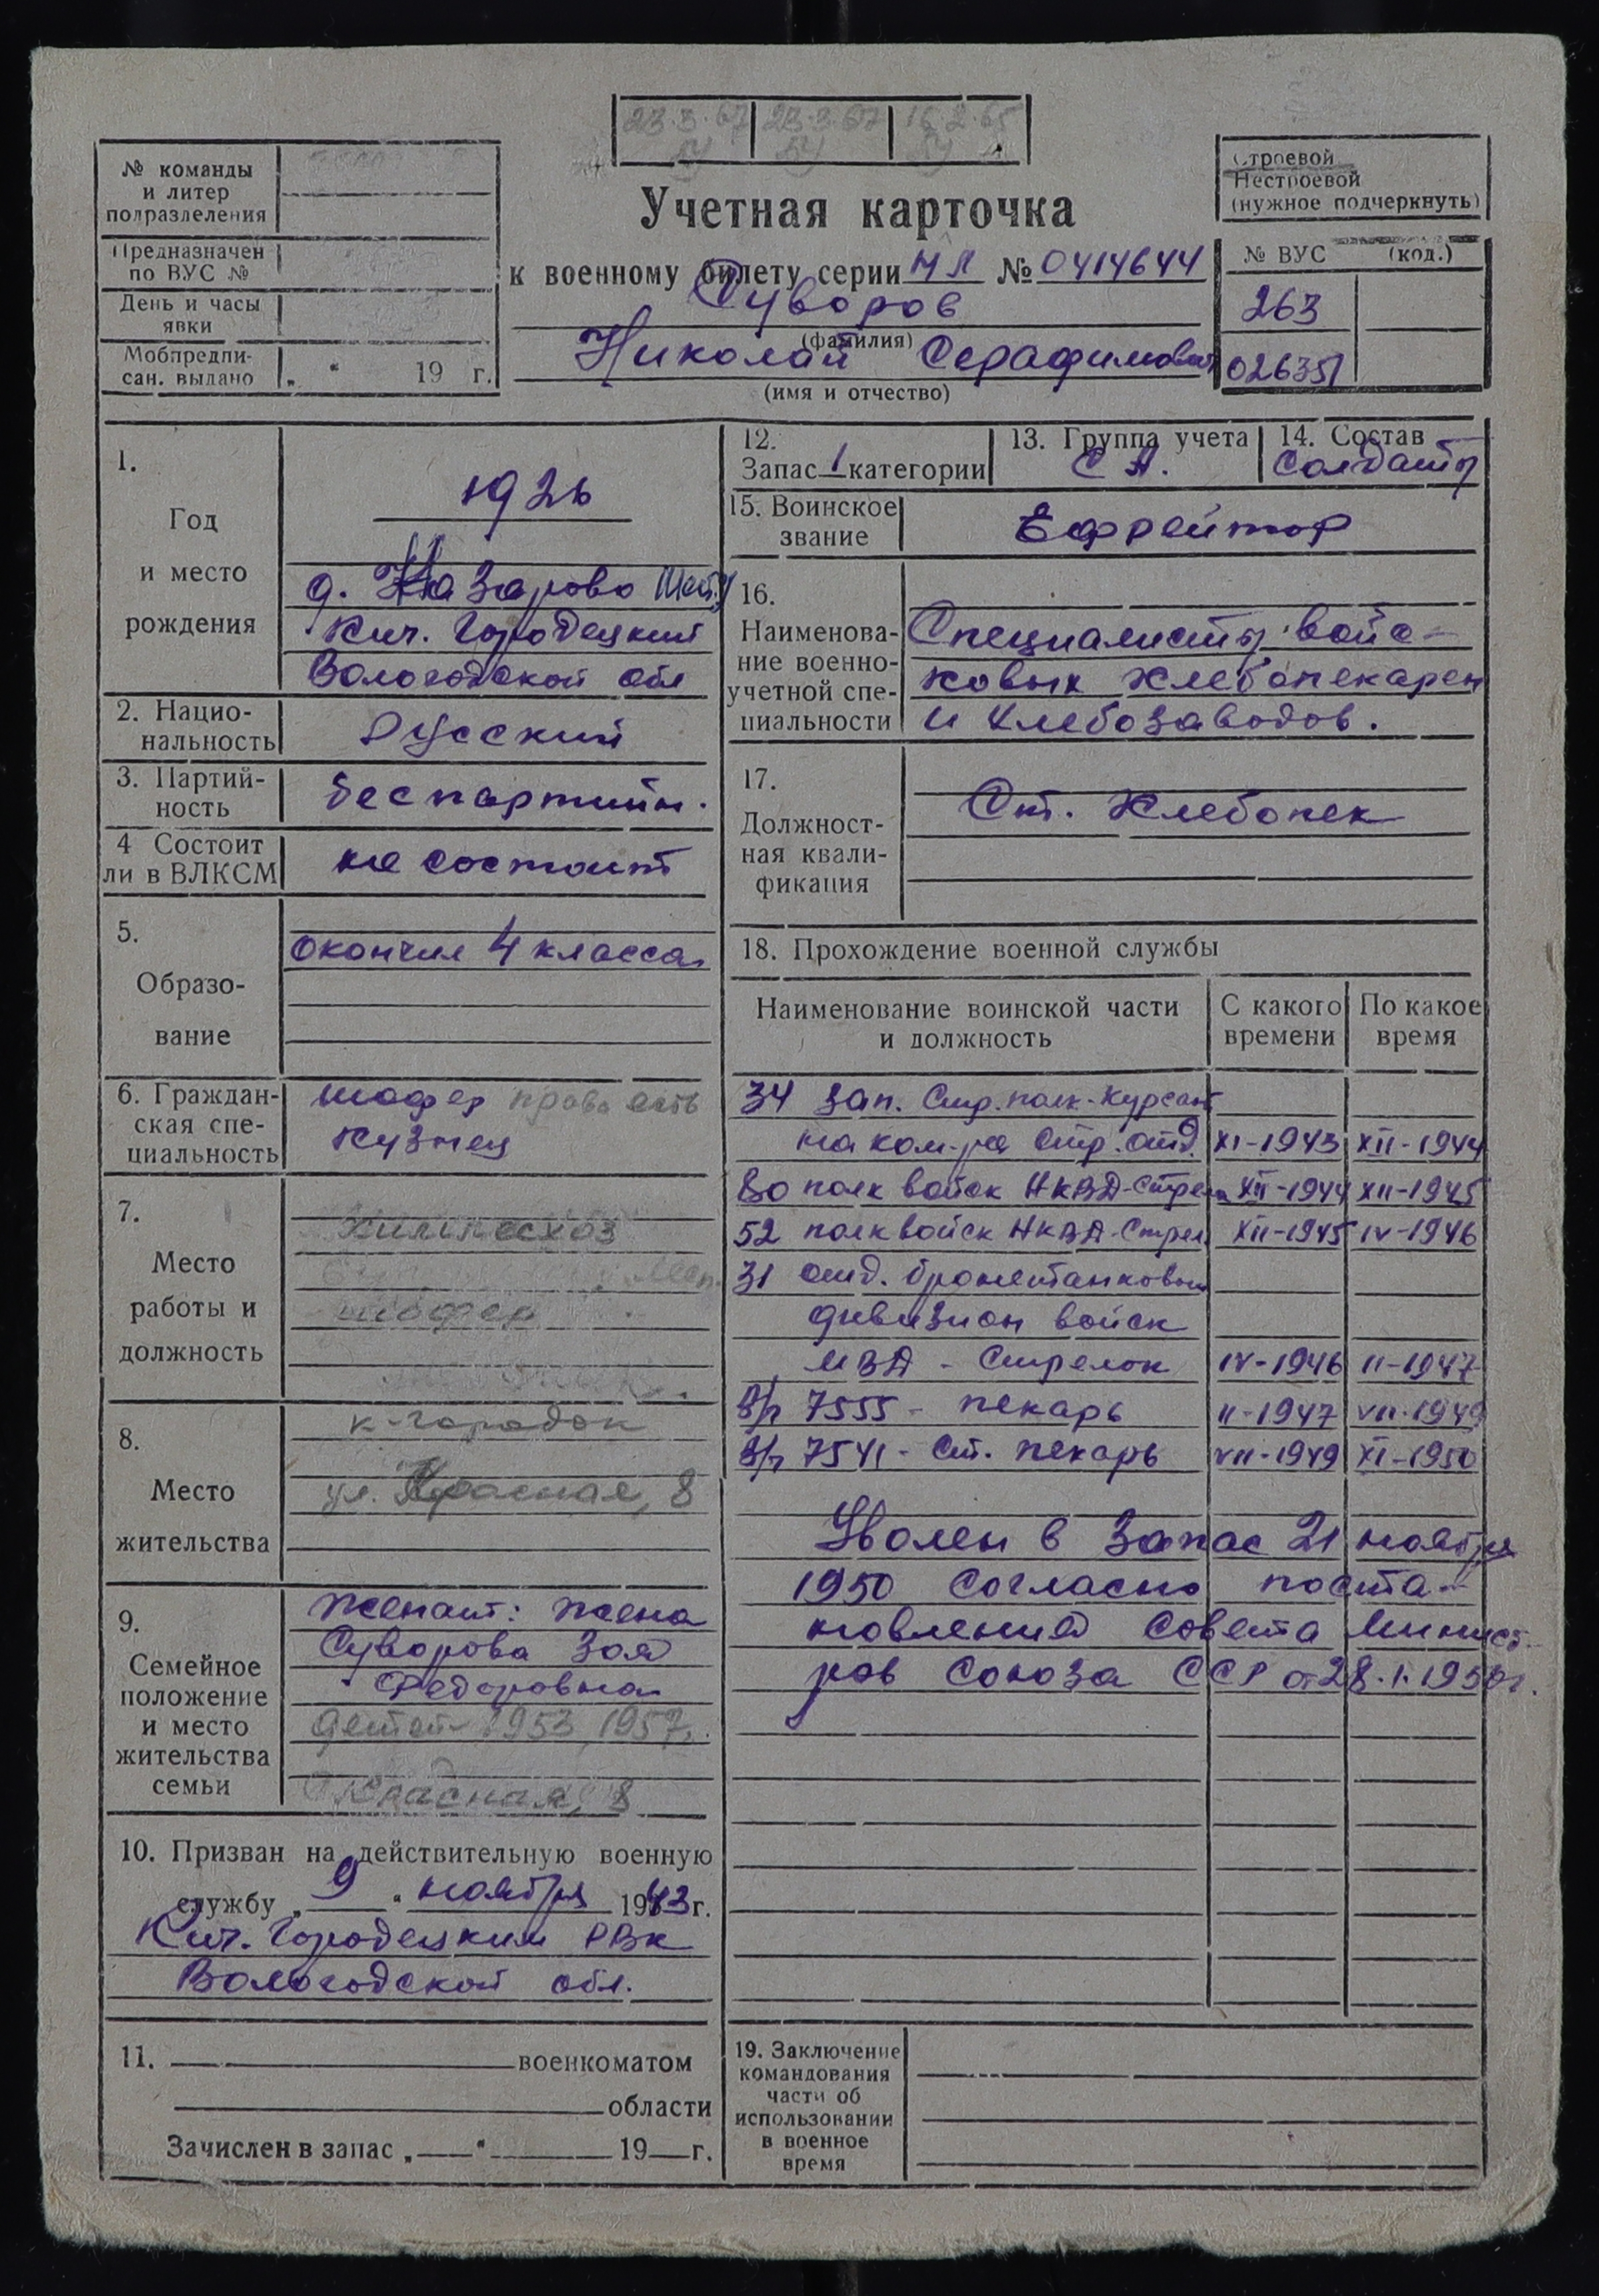 23.3.67 23.3.67 16.2.65
№ команды
и литер
подразделения
Предназначен
по ВУС №
День и часы
явки
Мобпредпи-
сан. выдано „ “ 19 г.
Учетная карточка
к военному билету серии НЛ № 0414644
Суворов
(фамилия)
Николай Серафимович
(имя и отчество)
Строевой
Нестроевой
(нужное подчеркнуть)
№ ВУС (код.)
263
026351
1.
Год
и место
рождения
1926
д. Назарово
Кич. Городецкий
Вологодской обл
2. Нацио-
нальность
Русский
3. Партий-
ность
беспартийн.
4 Состоит
ли в ВЛКСМ
не состоит
5.
Образо-
вание
окончил 4 класса
6. Граждан-
ская спе-
циальность
шофер права есть
Кузнец
7.
Место
работы и
должность
Химлесхоз
шофер
8.
Место
жительства
к-городок
ул. Красная, 8
9.
Семейное
положение
и место
жительства
семьи
Женат: жена
Суворова Зоя
Федоровна
детей - 1953, 1957г.
Красная, 8
10. Призван на действительную военную
службу „ 9 “ ноября 1943 г.
Кич. Городецким РВК
Вологодской обл.
11. военкоматом
области
Зачислен в запас „ “ 19 г.
12.
Запас 1 категории
13. Группа учета
С А.
14. Состав
Солдаты
15. Воинское
звание
Ефрейтор
16.
Наименова-
ние военно-
учетной спе-
циальности
Специалисты войс-
ковых хлебопекарен
и хлебозаводов.
17.
Должност-
ная квали-
фикация
Ст. Хлебопек
18. Прохождение военной службы
Наименование воинской части
и должность
С какого
времени
По какое
время
34 зап. Стр. полк - Курсант
на ком-ра стр. отд. XI-1943 XII-1944
80 полк войск НКВД - Стрелок XII-1944 XII-1945
52 полк войск НКВД - Стрел XII-1945 IV-1946
31 отд. бронетанковый
дивизион войск
МВД - Стрелок IV-1946 II-1947
В/ч 7555 - пекарь II-1947 VII-1949
В/ч 7541 - Ст. пекарь VII-1949 XI-1950
Уволен в запас 21 ноября
1950 согласно поста-
новления Совета Минист-
ров Союза ССР от 28.I.1950г.
19. Заключение
командования
части об
использовании
в военное
время